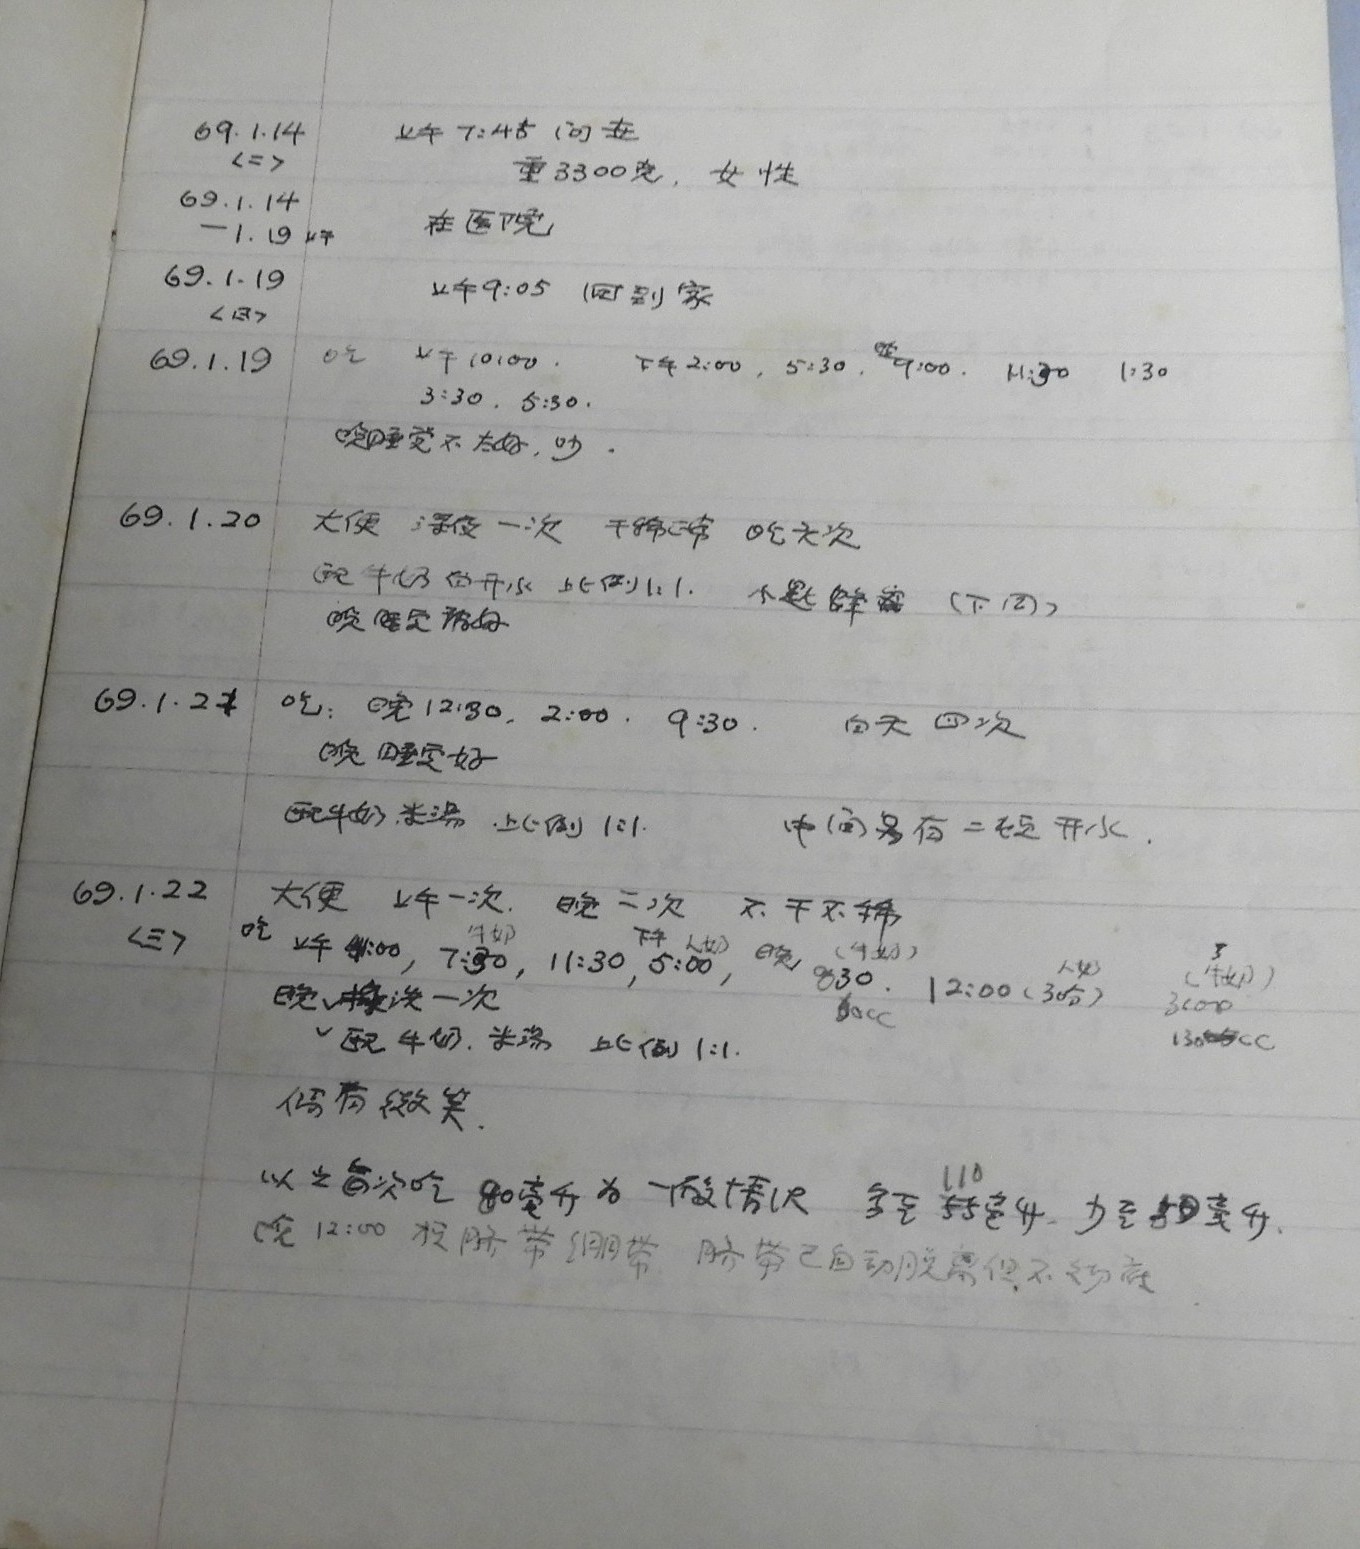 69.1.14 上午7:45 问世
<二> 重3300克, 女性
69.1.14
—1.19上午 在医院
69.1.19 上午9:05 回到家
<日>
69.1.19 吃 上午10:00. 下午2:00, 5:30. 晚9:00. 11:30 1:30
3:30. 5:30.
晚睡觉不太好, 吵.
69.1.20 大便 深夜一次 干稀正常 吃六次
配牛奶白开水 比例1:1. 小匙蜂蜜 (下同)
晚睡觉较好
69.1.21 吃: 晚12:30, 2:00. 9:30. 白天四次
晚睡觉好
配牛奶.米汤 比例1:1. 中间另有二顿开水.
69.1.22 大便 上午一次. 晚二次 不干不稀
<三> 吃 上午4:00, 7:30, 11:30, 下午5:00, 晚 8:30. 12:00(3哈) 3
牛奶 人奶 (牛奶) 人奶 (牛奶)
晚 洗一次 60cc 130cc
✓配牛奶.米汤 比例1:1.
偶有微笑.
以上每次吃80毫升为一般情况 多至110毫升. 少至50毫升.
晚12:00 换脐带绷带. 脐带已自动脱离但不彻底